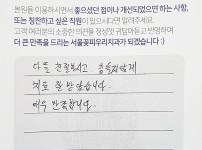 본원을 이용하시면서 좋으셨던 점이나 개선되었으면 하는 사항,
또는 칭찬하고 싶은 직원이 있으시다면 알려주세요.
고객 여러분의 소중한 의견을 정성껏 귀담아듣고 반영하여
더 큰 만족을 드리는 서울꽃피우리치과가 되겠습니다 :)
다들 친절하시고 꼼꼼하게
치료 잘 받았습니다.
매우 만족합니다.